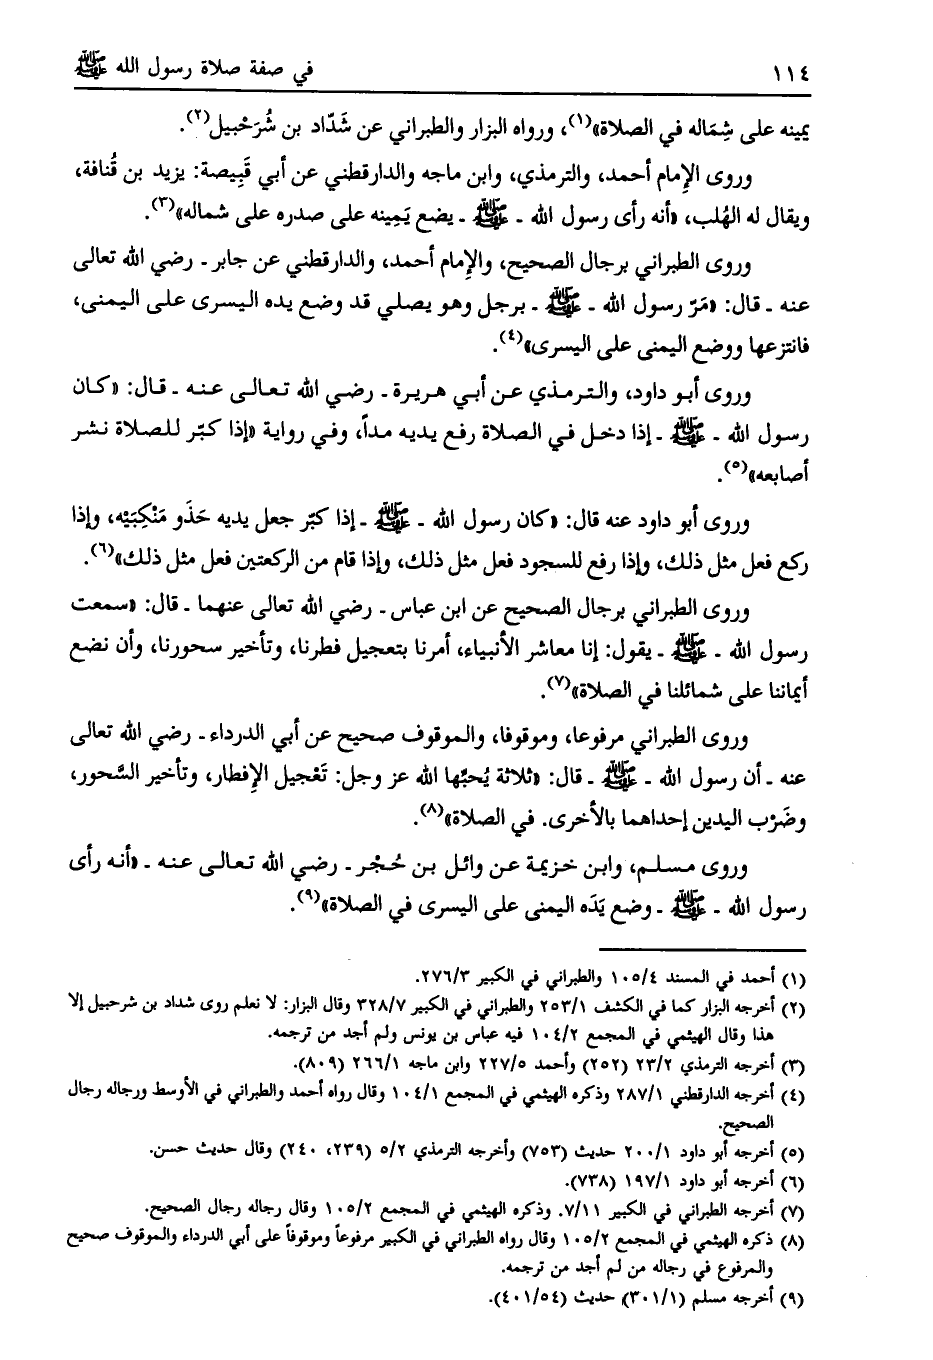 ١١٤ في صفة صلاة رسول الله ﷺ
يمينه على شِمَاله في الصلاة»(١)، ورواه البزار والطبراني عن شَدّاد بن شُرَحْبيل(٢).
وروى الإمام أحمد، والترمذي، وابن ماجه والدارقطني عن أبي قَبِيصة: يزيد بن قُنافة،
ويقال له الهُلب، «أنه رأى رسول الله ـ ﷺ ـ يضع يَمِينه على صدره على شماله»(٣).
وروى الطبراني برجال الصحيح، والإمام أحمد، والدارقطني عن جابر ـ رضي الله تعالى
عنه ـ قال: «مَرّ رسول الله ـ ﷺ ـ برجل وهو يصلي قد وضع يده اليسرى على اليمنى،
فانتزعها ووضع اليمنى على اليسرى»(٤).
وروى أبو داود، والترمذي عن أبي هريرة ـ رضي الله تعالى عنه ـ قال: «كان
رسول الله ـ ﷺ ـ إذا دخل في الصلاة رفع يديه مداً، وفي رواية «إذا كبّر للصلاة نشر
أصابعه»(٥).
وروى أبو داود عنه قال: «كان رسول الله ـ ﷺ ـ إذا كبّر جعل يديه حَذَو مَنْكِبَيْه، وإذا
ركع فعل مثل ذلك، وإذا رفع للسجود فعل مثل ذلك، وإذا قام من الركعتين فعل مثل ذلك»(٦).
وروى الطبراني برجال الصحيح عن ابن عباس ـ رضي الله تعالى عنهما ـ قال: «سمعت
رسول الله ـ ﷺ ـ يقول: إنا معاشر الأنبياء، أمرنا بتعجيل فطرنا، وتأخير سحورنا، وأن نضع
أيماننا على شمائلنا في الصلاة»(٧).
وروى الطبراني مرفوعا، وموقوفا، والموقوف صحيح عن أبي الدرداء ـ رضي الله تعالى
عنه ـ أن رسول الله ـ ﷺ ـ قال: «ثلاثة يُحبّها الله عز وجل: تَعْجيل الإفطار، وتأخير السَّحور،
وضَرْب اليدين إحداهما بالأخرى. في الصلاة»(٨).
وروى مسلم، وابن خزيمة عن وائل بن حُجْر ـ رضي الله تعالى عنه ـ «أنه رأى
رسول الله ـ ﷺ ـ وضع يَدَه اليمنى على اليسرى في الصلاة»(٩).
(١) أحمد في المسند ١٠٥/٤ والطبراني في الكبير ٢٧٦/٣.
(٢) أخرجه البزار كما في الكشف ٢٥٣/١ والطبراني في الكبير ٣٢٨/٧ وقال البزار: لا نعلم روى شداد بن شرحبيل إلا
هذا وقال الهيثمي في المجمع ١٠٤/٢ فيه عباس بن يونس ولم أجد من ترجمه.
(٣) أخرجه الترمذي ٢٣/٢ (٢٥٢) وأحمد ٢٢٧/٥ وابن ماجه ٢٦٦/١ (٨٠٩).
(٤) أخرجه الدارقطني ٢٨٧/١ وذكره الهيثمي في المجمع ١٠٤/١ وقال رواه أحمد والطبراني في الأوسط ورجاله رجال
الصحيح.
(٥) أخرجه أبو داود ٢٠٠/١ حديث (٧٥٣) وأخرجه الترمذي ٥/٢ (٢٣٩، ٢٤٠) وقال حديث حسن.
(٦) أخرجه أبو داود ١٩٧/١ (٧٣٨).
(٧) أخرجه الطبراني في الكبير ٧/١١. وذكره الهيثمي في المجمع ١٠٥/٢ وقال رجاله رجال الصحيح.
(٨) ذكره الهيثمي في المجمع ١٠٥/٢ وقال رواه الطبراني في الكبير مرفوعاً وموقوفاً على أبي الدرداء والموقوف صحيح
والمرفوع في رجاله من لم أجد من ترجمه.
(٩) أخرجه مسلم (٣٠١/١) حديث (٤٠١/٥٤).